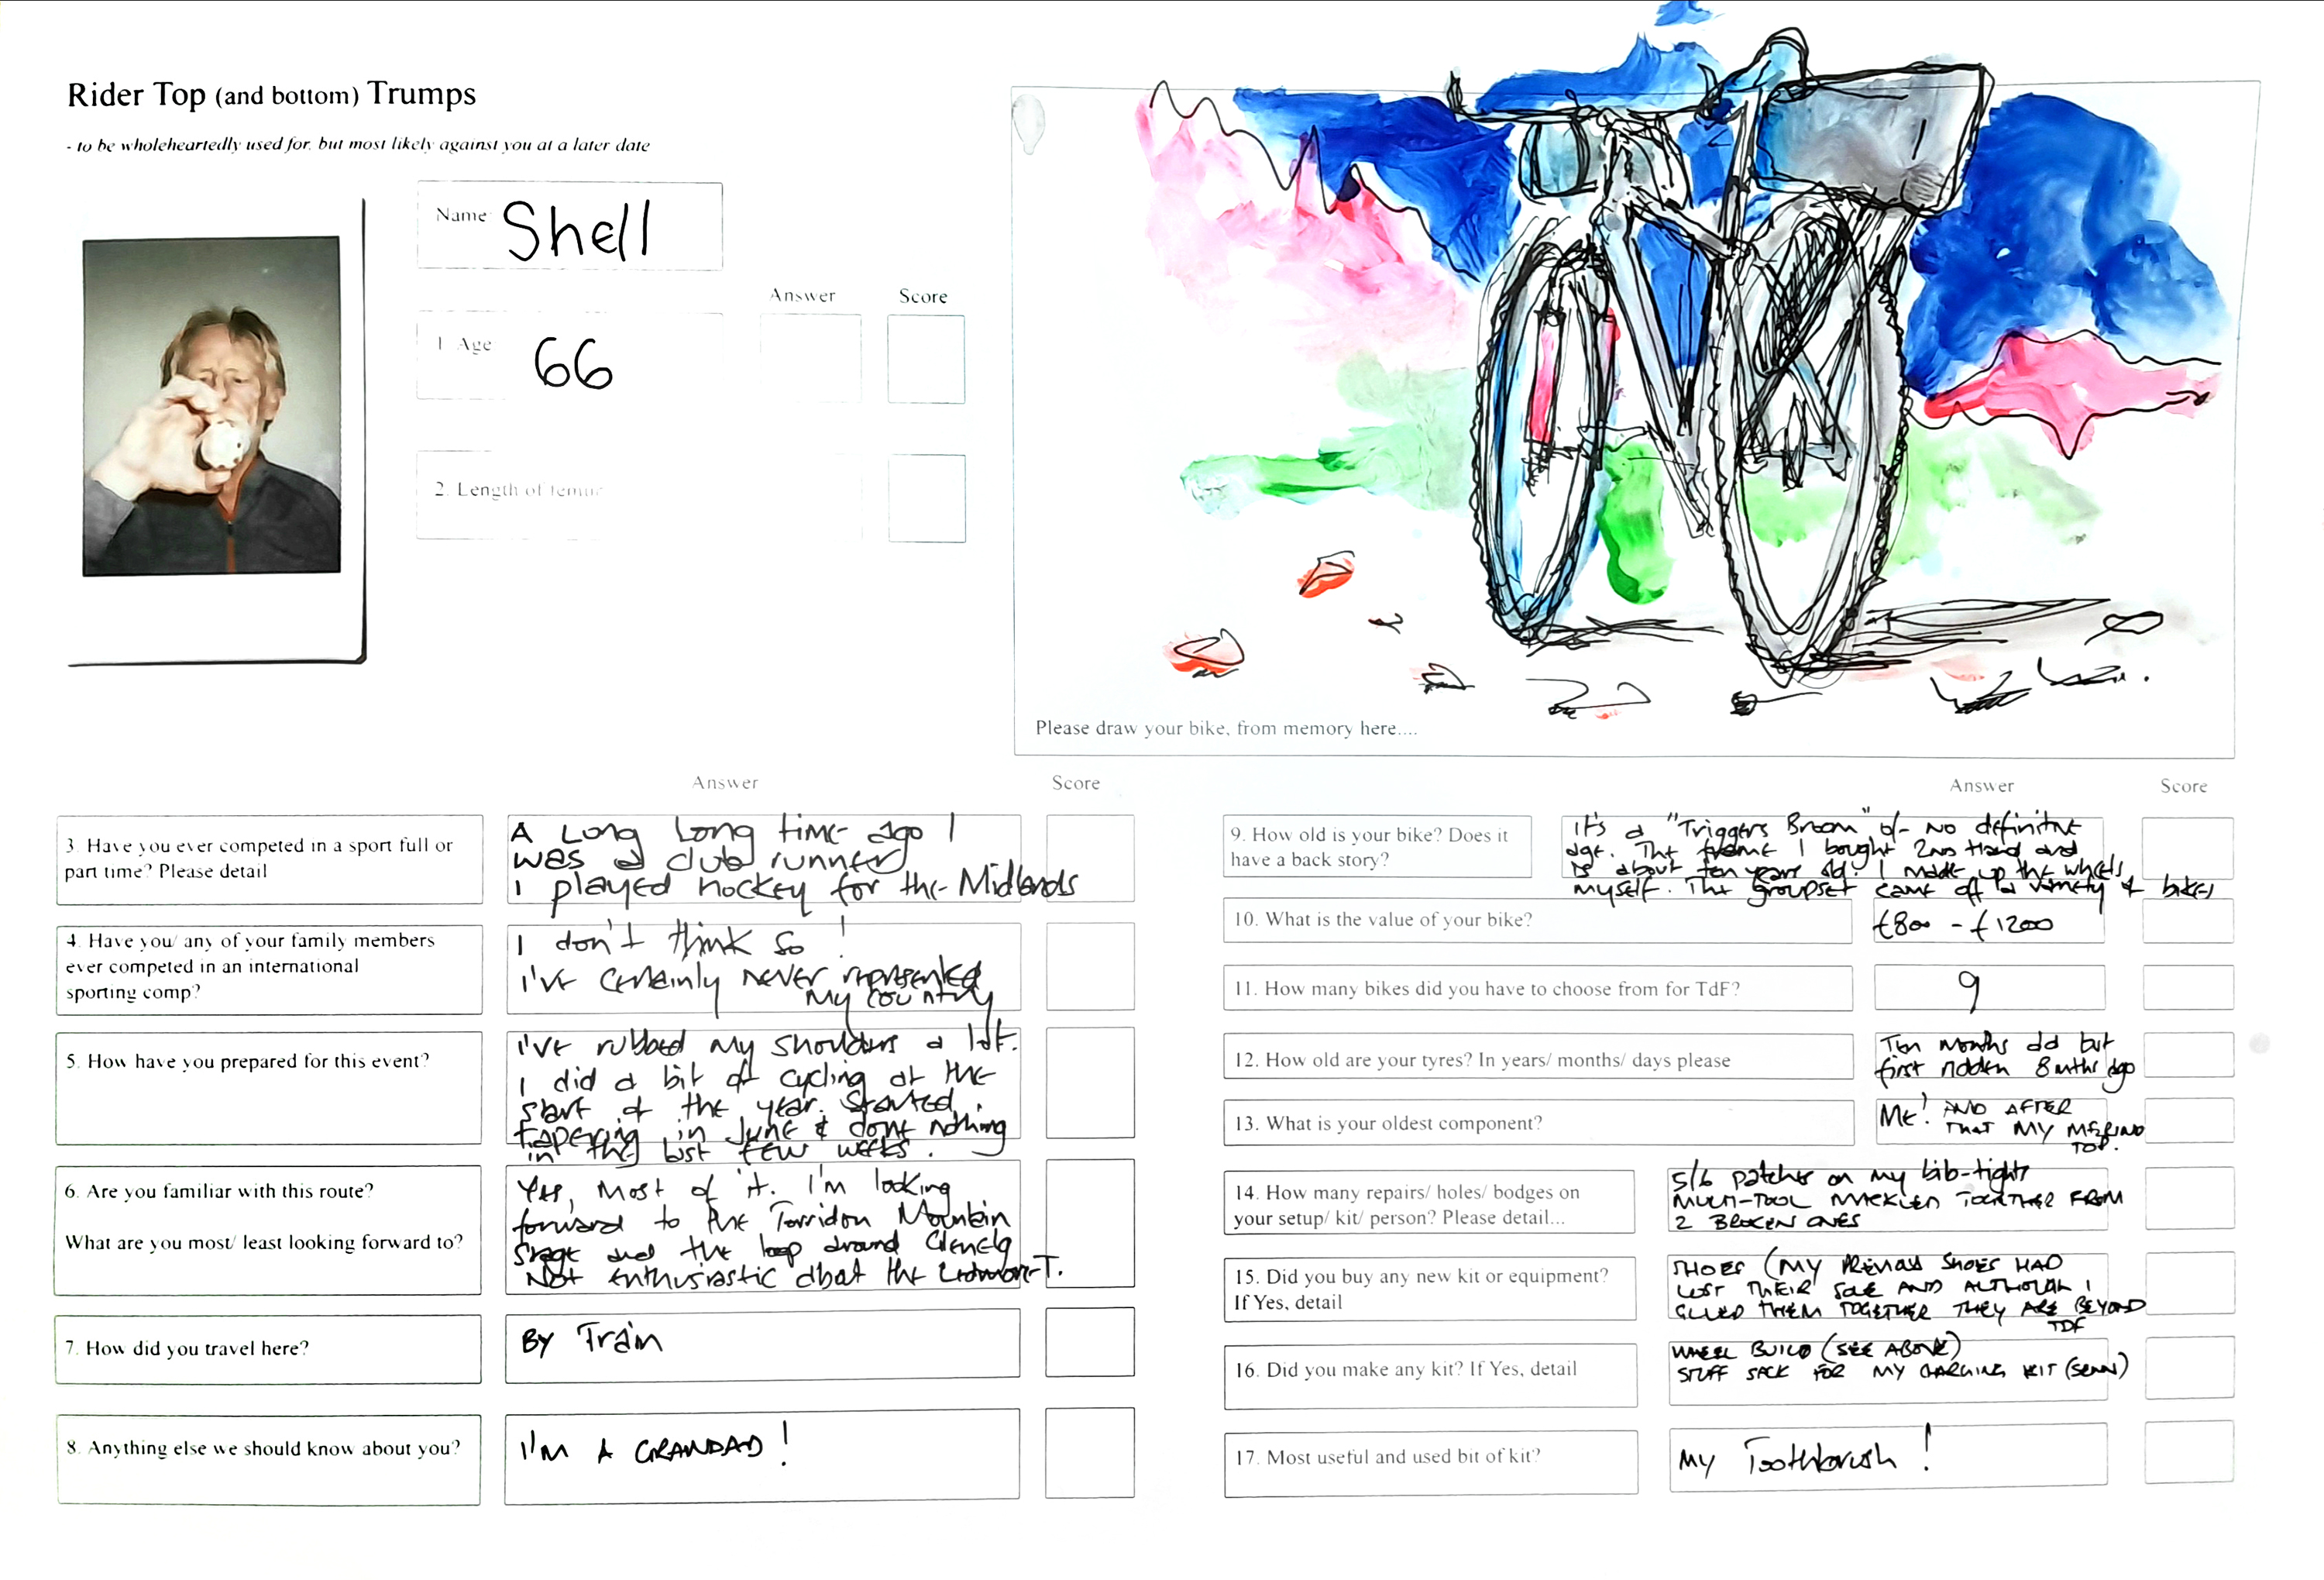 Rider Top (and bottom) Trumps
- to be wholeheartedly used for, but most likely against you at a later date
Name
Shell
Answer
Score
1. Age
66
2. Length of femur
Please draw your bike, from memory here....
Answer
Score
3. Have you ever competed in a sport full or
part time? Please detail
A Long Long time ago I
was a club runner
I played hockey for the Midlands
4. Have you/ any of your family members
ever competed in an international
sporting comp?
I don't think so!
I've certainly never represented
my country
5. How have you prepared for this event?
I've rubbed my shoulders a lot.
I did a bit of cycling at the
start of the year. Started
tapering in June & done nothing
in the last few weeks.
6. Are you familiar with this route?
What are you most/ least looking forward to?
Yes, most of it. I'm looking
forward to the Torridon Mountain
Stage and the loop around Glenelg
Not enthusiastic about the
7. How did you travel here?
By Train
8. Anything else we should know about you?
I'M A GRANDAD!
Answer
Score
9. How old is your bike? Does it
have a back story?
It's a "Triggers Broom" of no definitive
age. The frame I bought 2nd Hand and
is about ten years old. I made up the wheels
myself. The groupset came off a variety of bikes
10. What is the value of your bike?
£800 - £1200
11. How many bikes did you have to choose from for TdF?
9
12. How old are your tyres? In years/ months/ days please
Ten months old but
first ridden 8 mths ago
13. What is your oldest component?
Me! AND AFTER
THAT MY MERINO
TOP.
14. How many repairs/ holes/ bodges on
your setup/ kit/ person? Please detail...
5/6 patches on my bib-tights
MULTI-TOOL TOGETHER FROM
2 BROKEN ONES
15. Did you buy any new kit or equipment?
If Yes, detail
SHOES (MY PREVIOUS SHOES HAD
LOST THEIR SOLE AND ALTHOUGH I
GLUED THEM TOGETHER THEY ARE BEYOND
TDF
16. Did you make any kit? If Yes, detail
WHEEL BUILD (SEE ABOVE)
STUFF SACK FOR MY CHARGING KIT (SEWN)
17. Most useful and used bit of kit?
My Toothbrush!